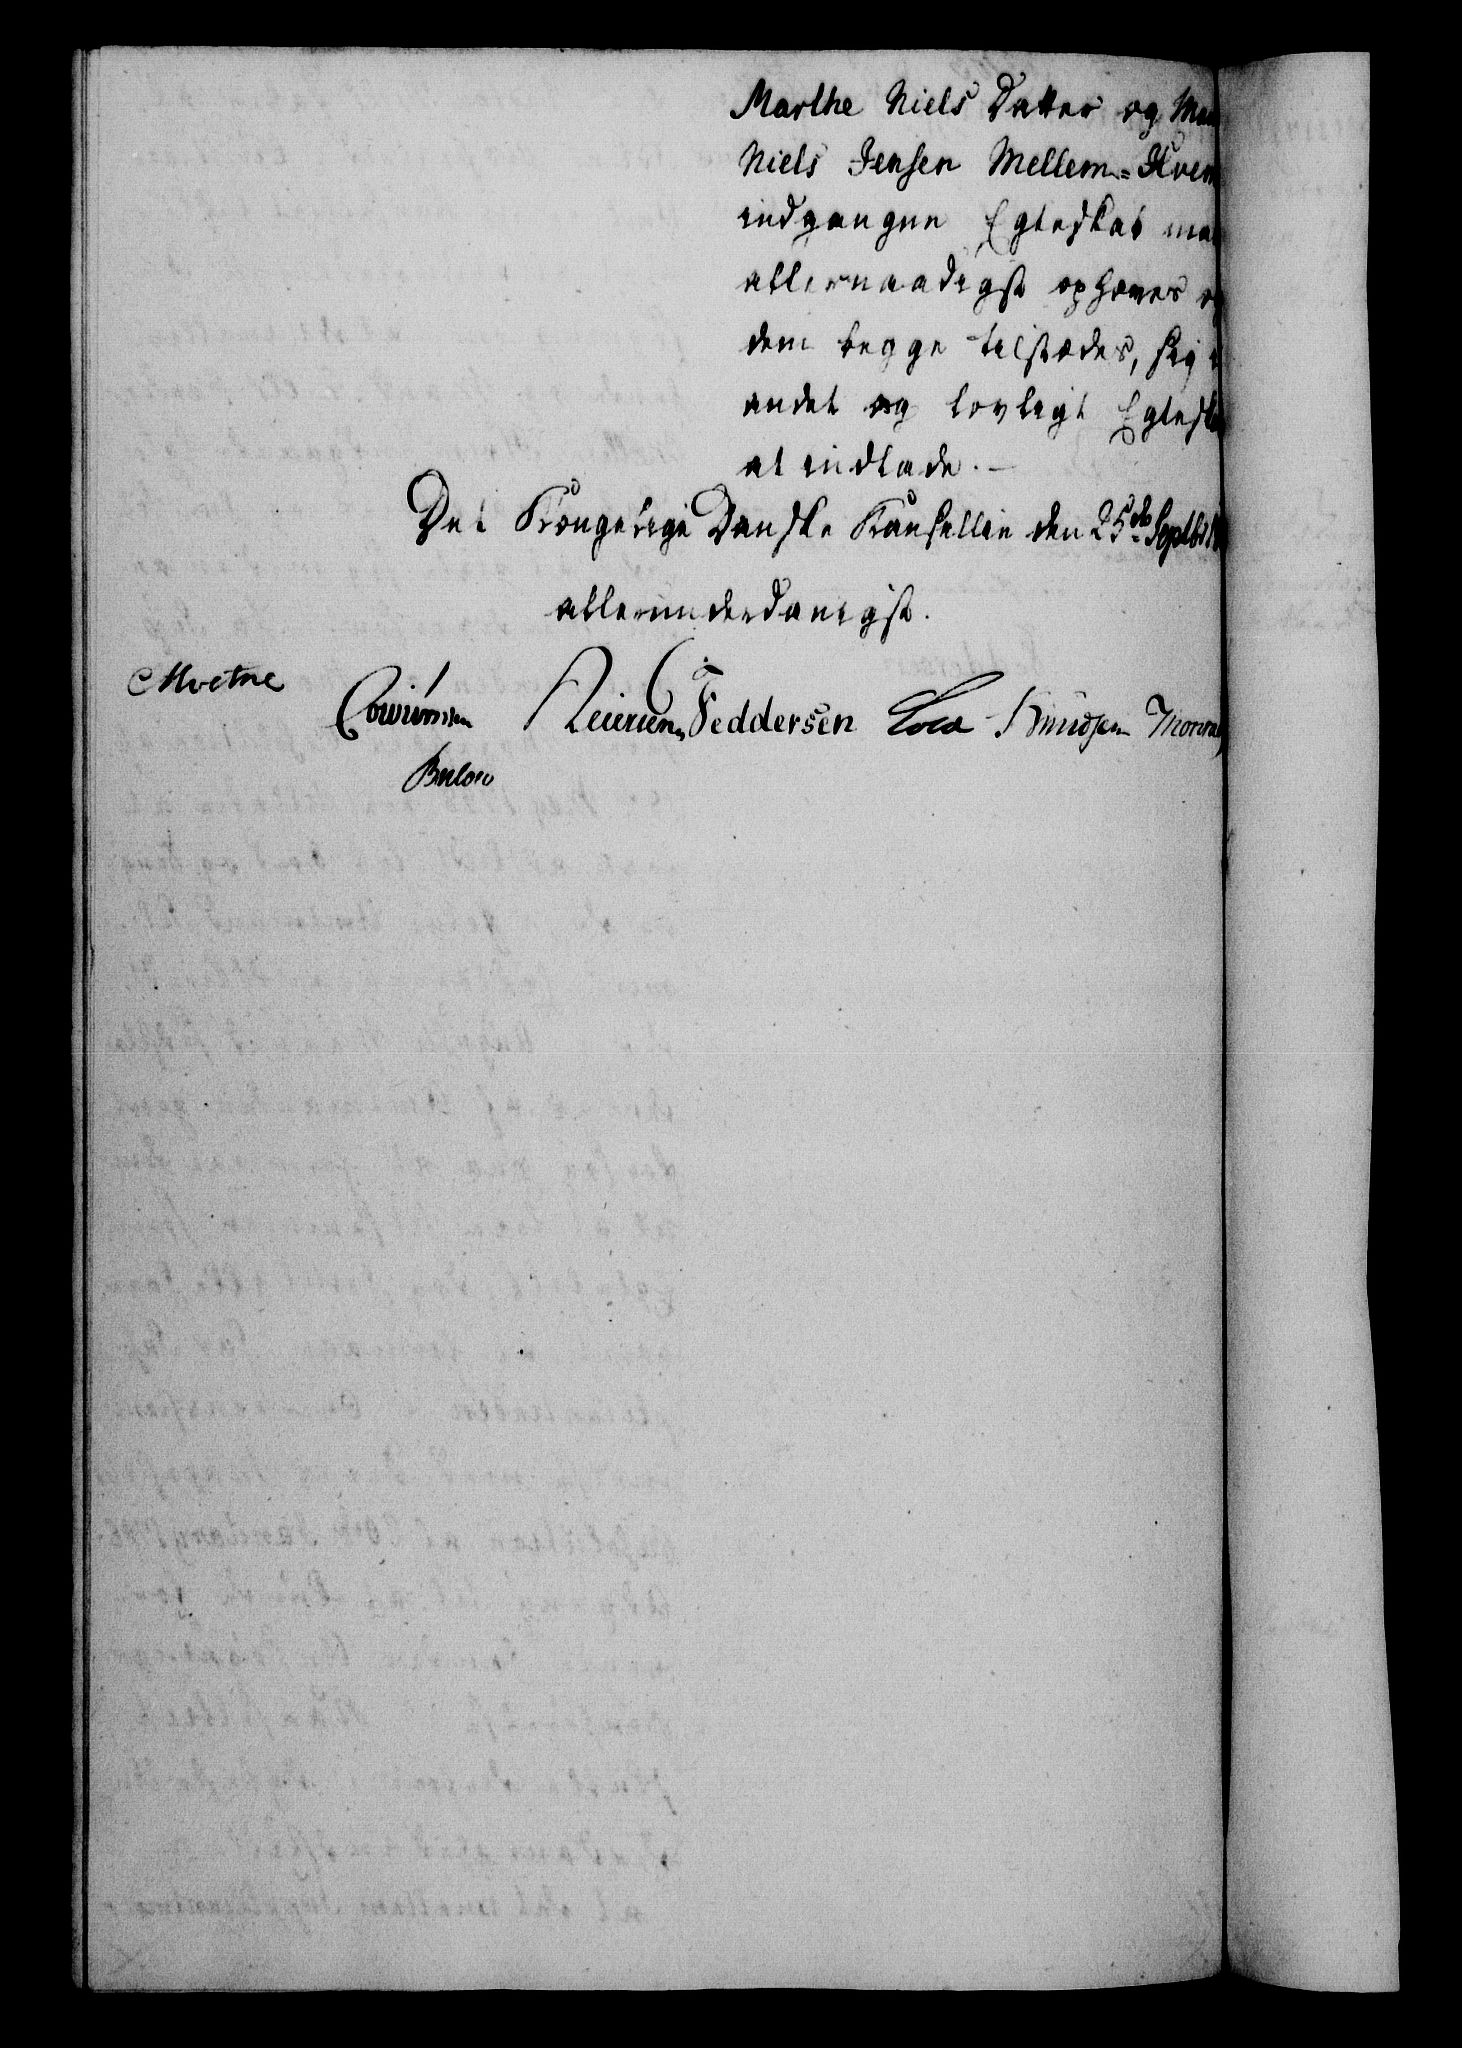 Marthe Niels Datter og
Niels Jensen Mellem=Hvem
indgangne Egteskab maa
allernaadigst ophæves og
dem begge tilstædes, sig i
andet og lovligt Egteska
at indlade. —
Det Kongelige Danske Kancellie den 25de Septbr
allerunderdanigst.
Moltke
Cowiunden Reiersen, Feddersen Cold Knudsen
Bülow